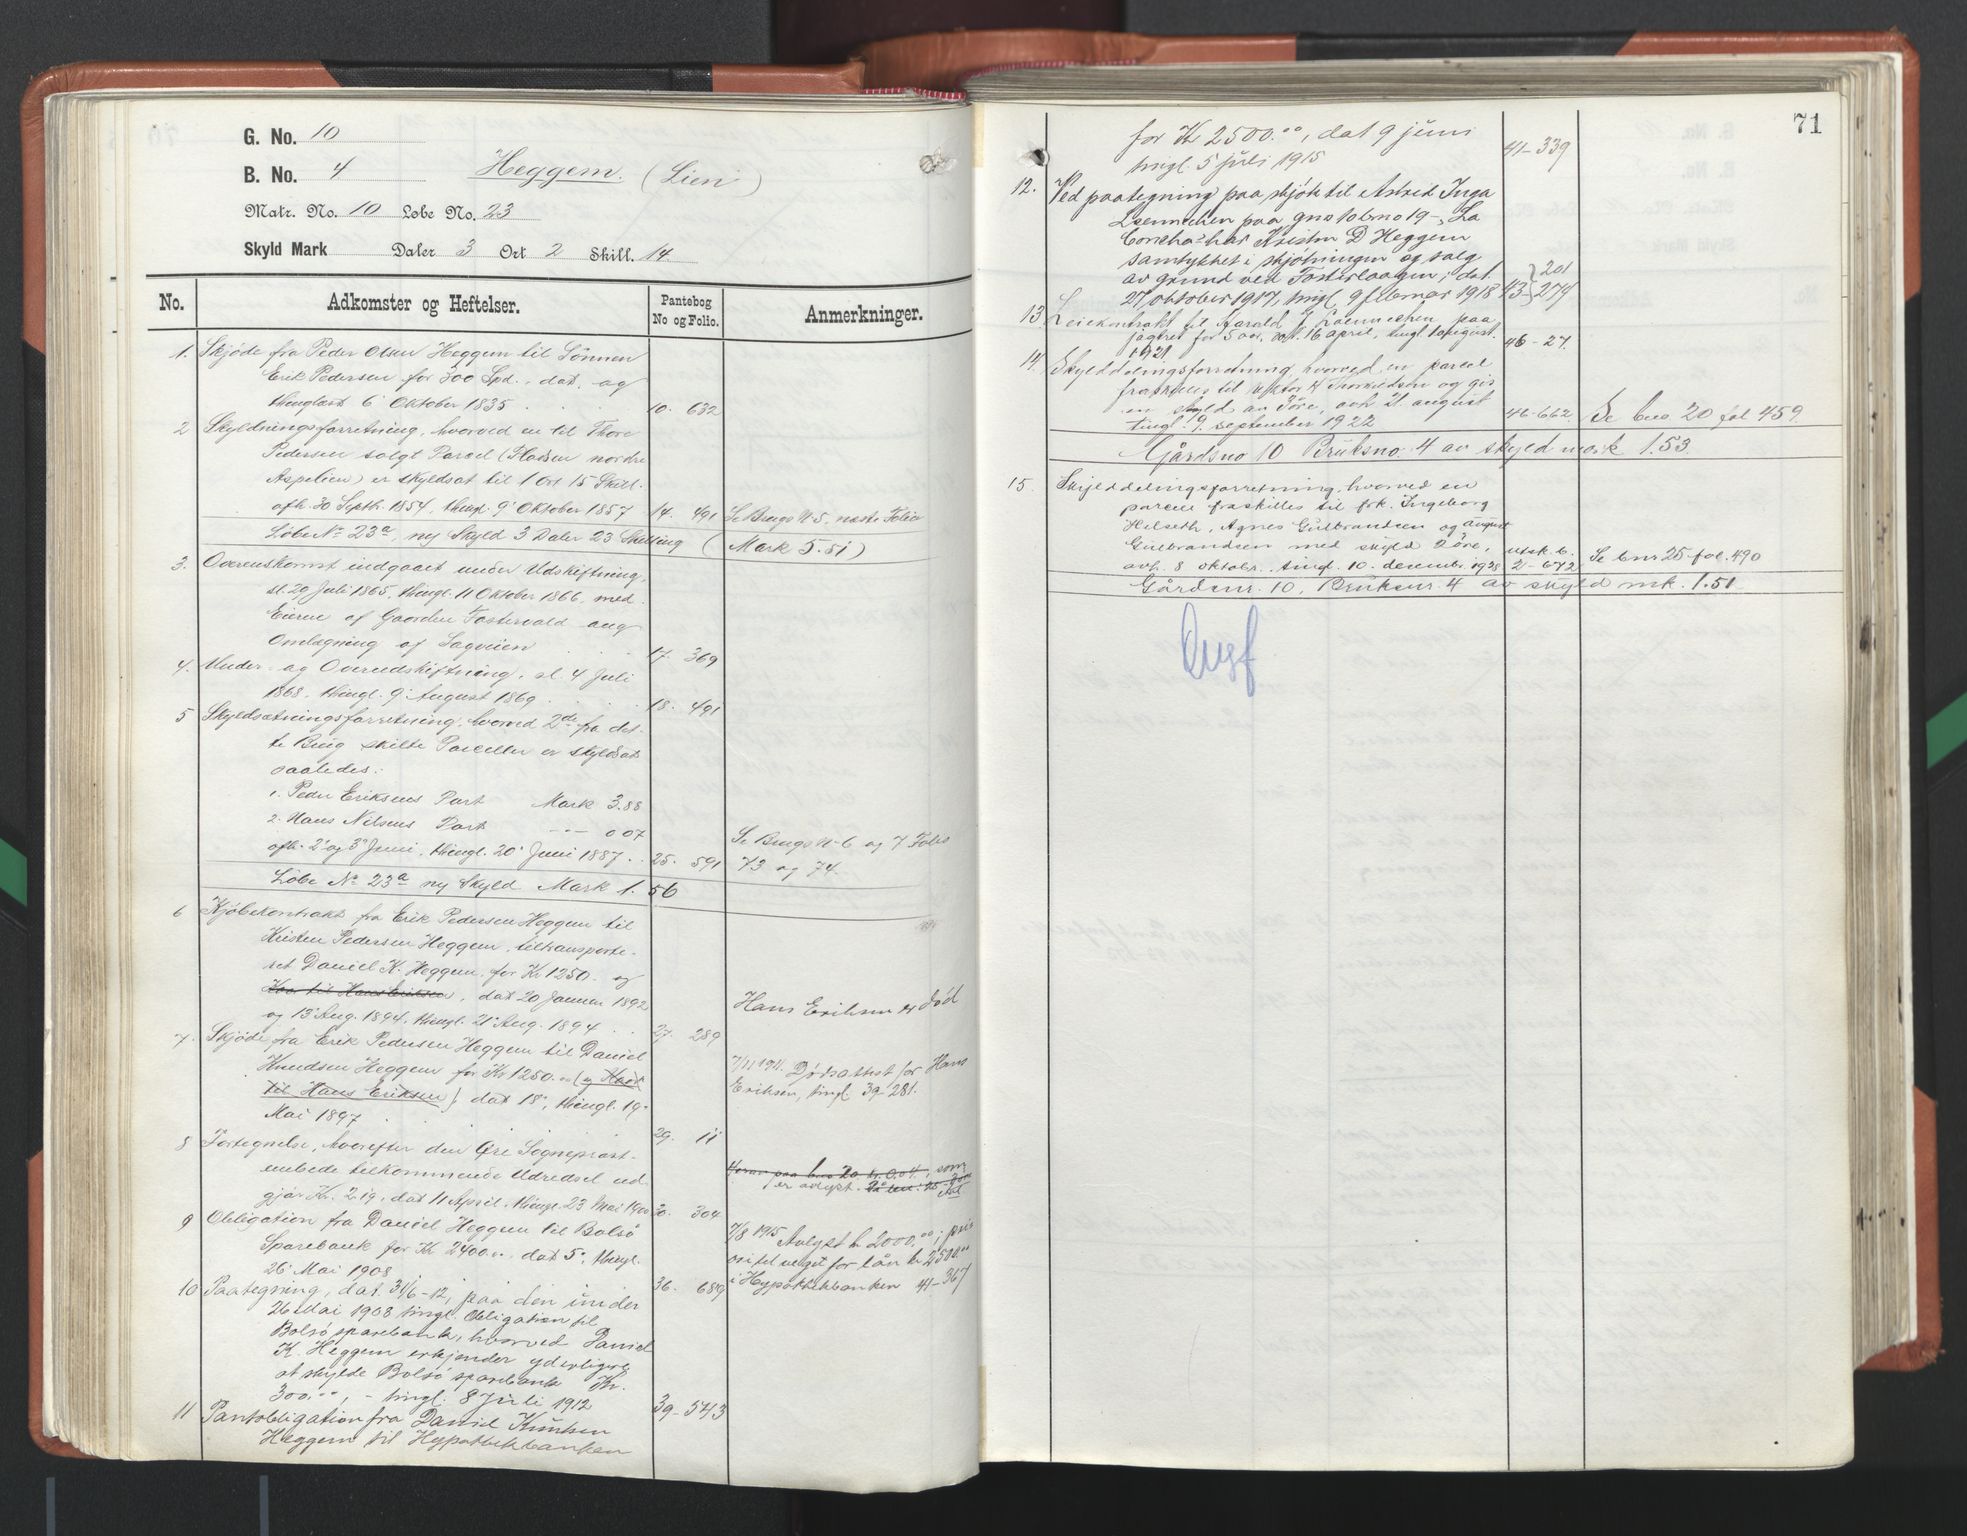 G. No. 10
B. No. 4 Heggem. (Lien)
Matr. No. 10 Løbe No. 23
Skyld Mark Daler 3 Ort 2 Skill. 14
No. Adkomster og Heftelser. Pantebog No og Folio. Anmerkninger.
1. Skjøde fra Peder Olsen Heggem til Sønnen
Erik Pedersen for 300 Spd., dat. og
thinglæst 6 Oktober 1835 . . . 10. 632
2 Skyldningsforretning, hvorved en til Thore
Pedersen solgt Parcel (Fladsen nordre
Aspelien) er skyldsat til 1 Ort 15 Skill.
afh. 30 Septb. 1854, thingl. 9 Oktober 1857 14. 491 Se Brugs N 5, næste Folio
Løbe No 23a, ny Skyld 3 Daler 23 Skilling (Mark 5.51)
3. Overenskomst indgaaet under Udskiftning,
sl. 29 Juli 1865, thingl. 11 Oktober 1866, med
Eierne af Gaarden Fostervold ang
Omlægning af Sagveien . . . 17. 369
4. Under- og Overudskiftning, sl. 4 Juli
1868, thingl. 9 August 1869 . . . 18. 491
5 Skyldsætningsforretning, hvorved 2de fra det-
te Brug skilte Parceller er skyldsat
saaledes:
1. Peder Eriksens Part Mark 3.88
2. Hans Nilsens Part —"— 0 07
afh. 2 og 3 Juni, thingl. 20 Juni 1887 . . 25. 591 Se Brugs N 6 og 7 Folio
73 og 74.
Løbe No 23a ny Skyld Mark 1.56
6 Kjøbekontrakt fra Erik Pedersen Heggem til
Kristen Pedersen Heggem, tiltransporte-
ret Daniel K. Heggem, for Kr 1250.- og
Kaar til Hans Eriksen, dat 20 Januar 1892
og 13 Aug. 1894, thingl. 21 Aug. 1894 . . 27. 289 Hans Eriksen er død
7. Skjøde fra Erik Pedersen Heggem til Daniel
Knudsen Heggem for Kr 1250.00 (og Kaar
til Hans Eriksen), dat 18, thingl. 19
Mai 1897 . 29. 11
7/11 1911 Dødsattest for Hans
Eriksen, tingl. 39-281.
8 Fortegnelse, hvorefter den Øre Sogneprest-
embede tilkommende Udredsel ud-
gjør Kr. 2.19, dat 11 April, thingl. 23 Mai 1900 30. 304
Herav paa bno 20 kr. 0.04, som
er avlyst.
9 Obligation fra Daniel Heggem til Bolsø
Sparebank for Kr 2400.00, dat 5, thingl.
26 Mai 1908 36. 689
7/8 1915 Avlyst kr 2000.00; pri-
oritet veget for lån kr 2500.00
i Hypothekbanken 41-367
10 Paategning, dat. 31/6-12, paa den under
26 Mai 1908 tingl. Obligation til
Bolsø sparebank, hvorved Daniel
K. Heggem erkjender yderligere
at skylde Bolsø sparebank Kr.
300.00, - tingl. 8 Juli 1912 39-543
11 Pantobligation fra Daniel Knutsen
Heggem til Hypothekbanken
71
for Kr 2500.00, dat 9 juni
tingl. 5 juli 1915 41-339
12. Ved paategning paa skjøte til Astrid Inga
Loennechen paa gno 10 bno 19 -, "La
Concha" har Kristen D Heggem
samtykket i skjøtningen og salg
av grund ved Fosterlaagen; dat.
27 oktober 1917, tingl. 9 februar 1918 43} 201 279
13 Leiekontrakt til Harald J Loennechen paa
jagtret for 5 aar, dat. 16 april, tingl. 10 august
1921 46-27.
14. Skylddelingsforretning, hvorved en parcel
fraskilles til Viktor H Thorkildsen og gis
en skyld av 3 øre, avh 21. august
tingl. 9. september 1922 46-662. Se bno 20 fol 459.
Gårdsno 10 Bruksno. 4 av skyld mark 1.53.
15. Skylddelingsforretning, hvorved en
parcel fraskilles til frk. Ingeborg
Helseth, Agnes Gulbrandsen og august
Gulbrandsen med skyld 2 øre,
avh. 8 oktobr., tingl. 10. decembr. 1928 utsk. b. 2-672 Se bnr 25 fol. 490
Gårdsnr. 10, Bruksnr. 4 av skyld mk. 1.51